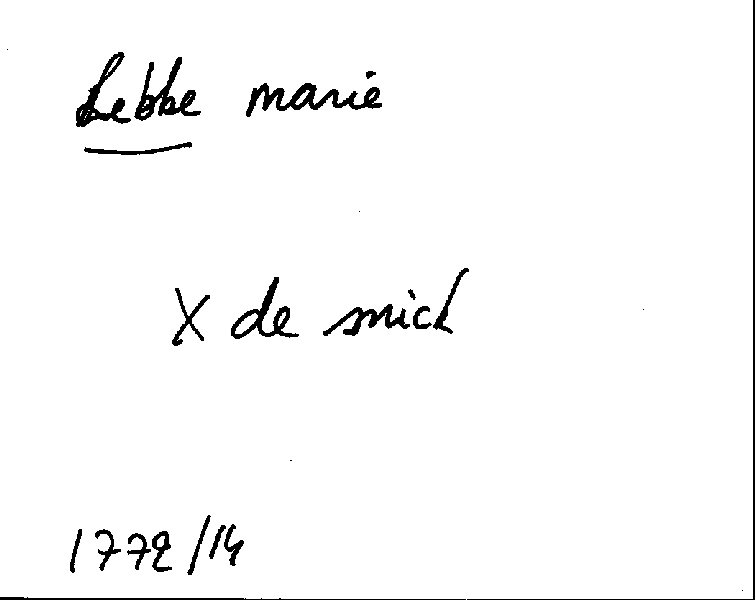 Lebbe marie
X de smick
1772/14